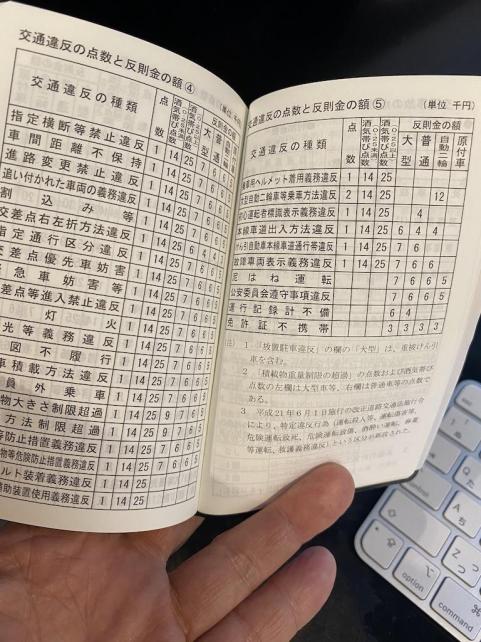 交通違反の点数と反則金の額④
(単位 千円)
交通違反の種類
点数
酒気帯び点数 0.25未満
酒気帯び点数 0.25以上
反則金の額
大型
普通
指定横断等禁止違反 1 14 25 7 6 6
車間距離不保持 1 14 25 7 6 6
進路変更禁止違反 1 14 25 7 6 6
追い付かれた車両の義務違反 1 14 25 7 6 6
割込み等 1 14 25 7 6 6
交差点右左折方法違反 1 14 25
指定通行区分違反 1 14 25 7 6 6
交差点優先車妨害 1 14 25 7 6 6
緊急車妨害等 1 14 25 7 6 6
交差点等進入禁止違反 1 14 25 7 6 6
灯火 1 14 25 7 6 6
光等義務違反 1 14 25 7 6 6
図不履行 1 14 25 7 6 6
車積載方法違反 1 14 25 7 6 6
員外乗車 1 14 25 7 6 6
物大きさ制限超過 1 14 25 9 7 6
方法制限超過 1 14 25
等防止措置義務違反 1 14 25 7 6 6
物等危険防止措置義務違反 1 14 25 7 6 6
ルト装着義務違反 1 14 25
補助装置使用義務違反 1 14 25
交通違反の点数と反則金の額⑤
(単位 千円)
交通違反の種類
点数
酒気帯び点数 0.25未満
酒気帯び点数 0.25以上
反則金の額
大型
普通
自動二輪
原付車
車用ヘルメット着用義務違反 1 14 25
大型自動二輪車等乗車方法違反 2 14 25 12
初心運転者標識表示義務違反 1 14 25 4
本線車道出入方法違反 1 14 25 6 4 4
けん引自動車本線車道通行帯違反 1 14 25 7 6
故障車両表示義務違反 1 14 25 7 6 6
泥はね運転 7 6 6 5
公安委員会遵守事項違反 7 6 6 5
運行記録計不備 6 4
免許証不携帯 3 3 3 3
注) 1 「放置駐車違反」の欄の「大型」は、重被けん引
車を含む。
2 「積載物重量制限の超過」の点数および酒気帯び
点数の左欄は大型車等、右欄は普通車等の点数で
ある。
3 平成21年6月1日施行の改正道路交通法施行令
により、特定違反行為(運転殺人等、運転傷害等、
危険運転致死、危険運転致傷、酒酔い運転、麻薬
等運転、救護義務違反)という区分が新設された。
option
command
あ
ち
た
Q
A
Z
つ